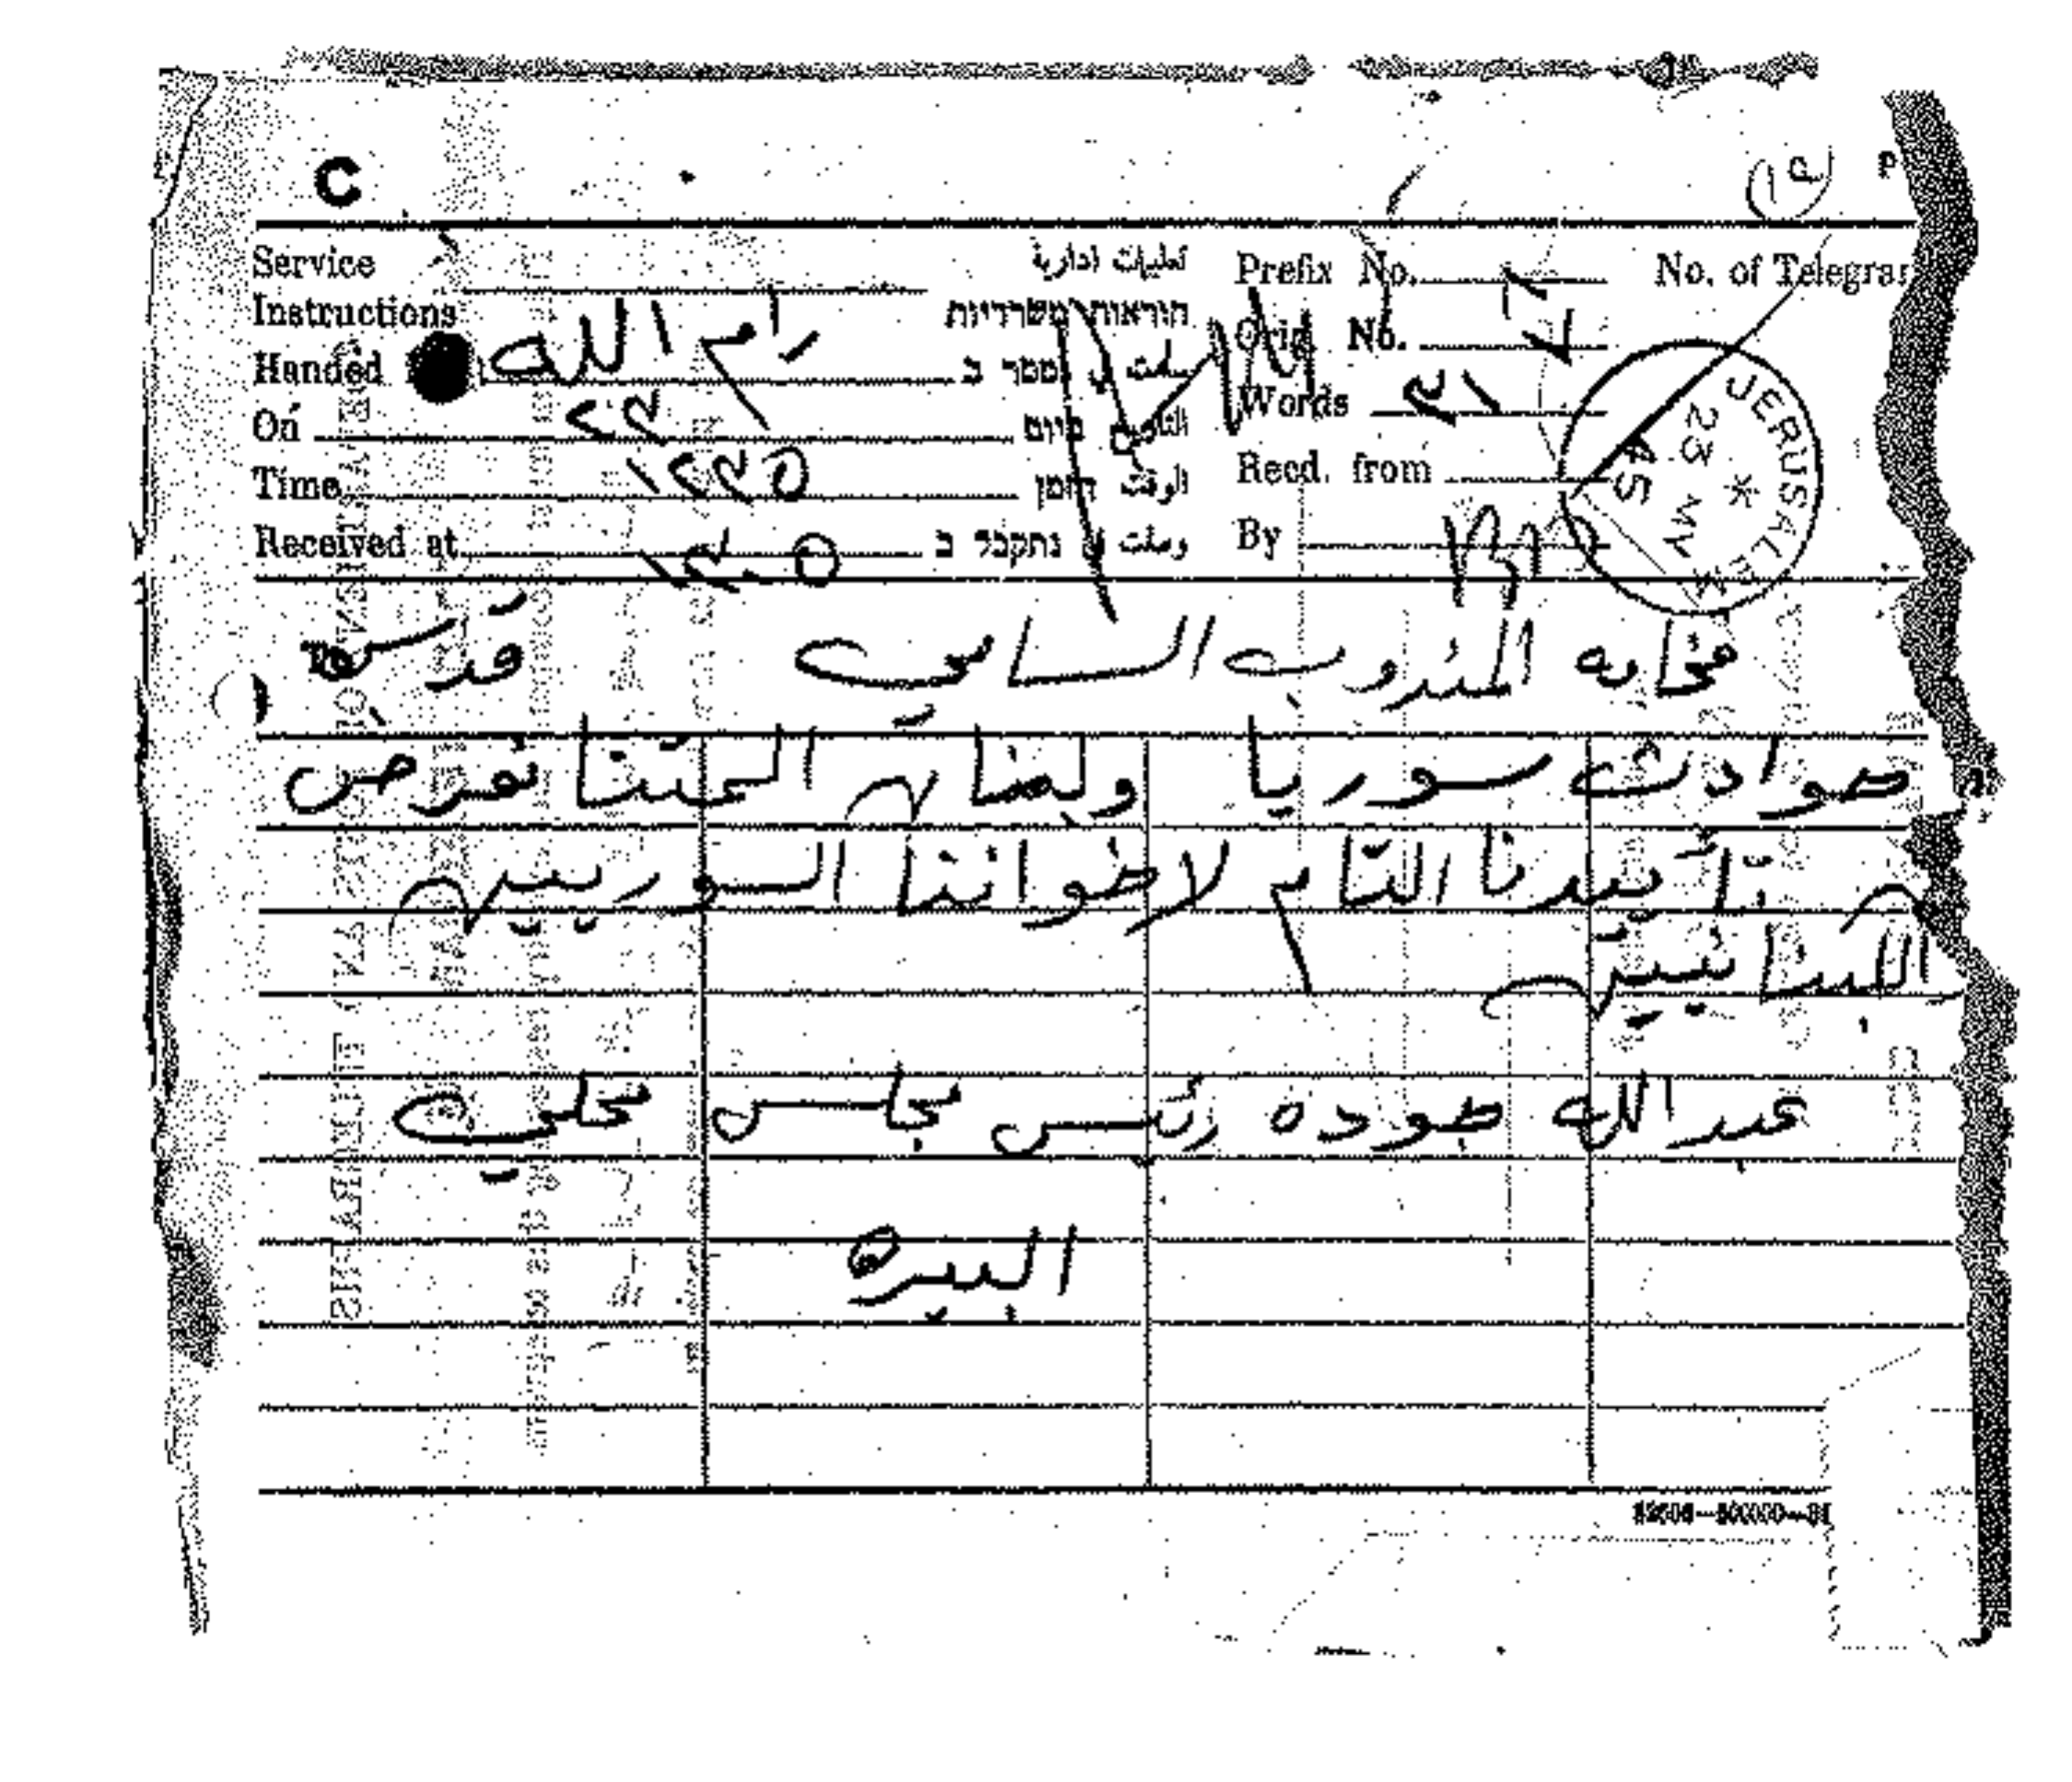 C
Service تعليمات ادارية Prefix No. No. of Telegra
Instructions הוראות משרדיות Orig. No.
Handed رام الله سلمت في נמסר ב Words ٢١
On ٢٣ التاريخ ביום
Time ١٢٣٥ الوقت הזמן Recd. from
Received at ١٣٠٥ وصلت في נתקבל ב By
JERUSALEM
23 MY
45
To فخامه المندوب السامي قدس
حوادث سوريا ولبنان المتنا نعرض
تأييدنا التام لاخواننا السوريين
اللبنانيين
عبدالله جوده رئيس مجلس محلي
البيره